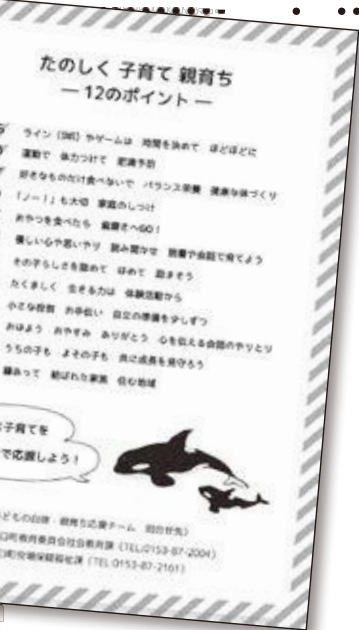 たのしく 子育て 親育ち
― 12のポイント ―
ライン（SNS）やゲームは 時間を決めて ほどほどに
運動で 体力つけて 肥満予防
好きなものだけ食べないで バランス栄養 健康な体づくり
「ノー！」も大切 家庭のしつけ
おやつを食べたら 歯磨きへGO！
優しい心や思いやり 読み聞かせ 読書や会話で育てよう
その子らしさを認めて ほめて 励まそう
たくましく 生きる力は 体験活動から
小さな役割 お手伝い 自立の準備を少しずつ
おはよう おやすみ ありがとう 心を伝える会話のやりとり
うちの子も よその子も 共に成長を見守ろう
縁あって 結ばれた家族 住む地域
子育てを
で応援しよう！
どもの自律・親育ち応援チーム
町教育委員会社会教育課（TEL:0153-87-2004）
町役場保健福祉課（TEL 0153-87-2161）